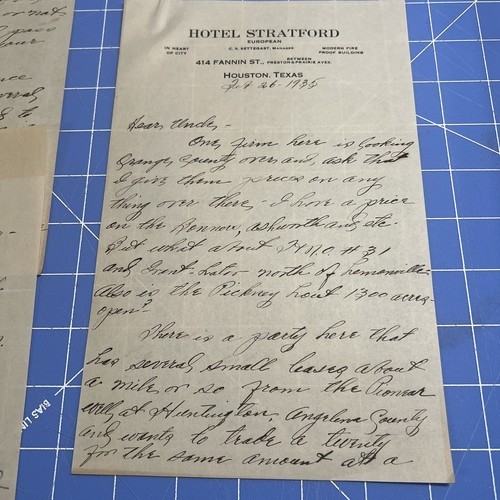 HOTEL STRATFORD
EUROPEAN
IN HEART OF CITY
C. S. KETTERART, MANAGER
MODERN FIRE PROOF BUILDING
414 FANNIN ST., BETWEEN PRESTON & PRAIRIE AVES.
HOUSTON, TEXAS
Feb 26-1935
Dear Uncle,-
One firm here is looking
Orange County over and, ask that
I give them prices on any
thing over there,- I have a price
on the Bonnow, Ashworth and etc-
But what about # 31
and Grant Lator north of Lemonville.
Also is the Pickney hunt 1300 acres
open?
There is a party here that
has several small leases about
a mile or so from the Pionear
well, at Huntington, Angelena County
and wants to trade a twenty
for the same amount at a
BIAS